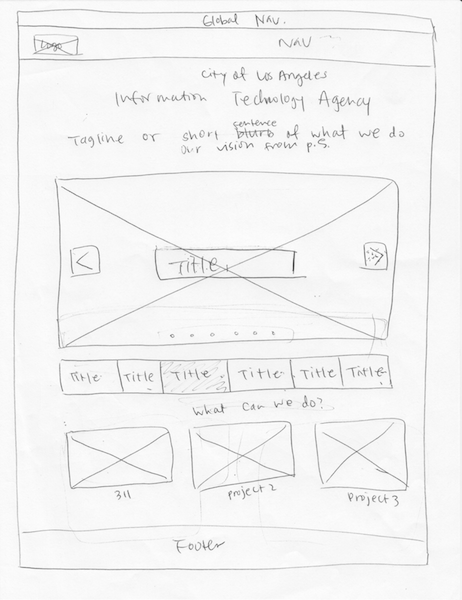 Global Nav.
Logo
NAV
City of Los Angeles
Information Technology Agency
sentence
Tagline or short blurb of what we do
our vision from p.S.
<
Title.
>
Title Title Title Title Title Title
What can we do?
311 project 2 project 3
Footer